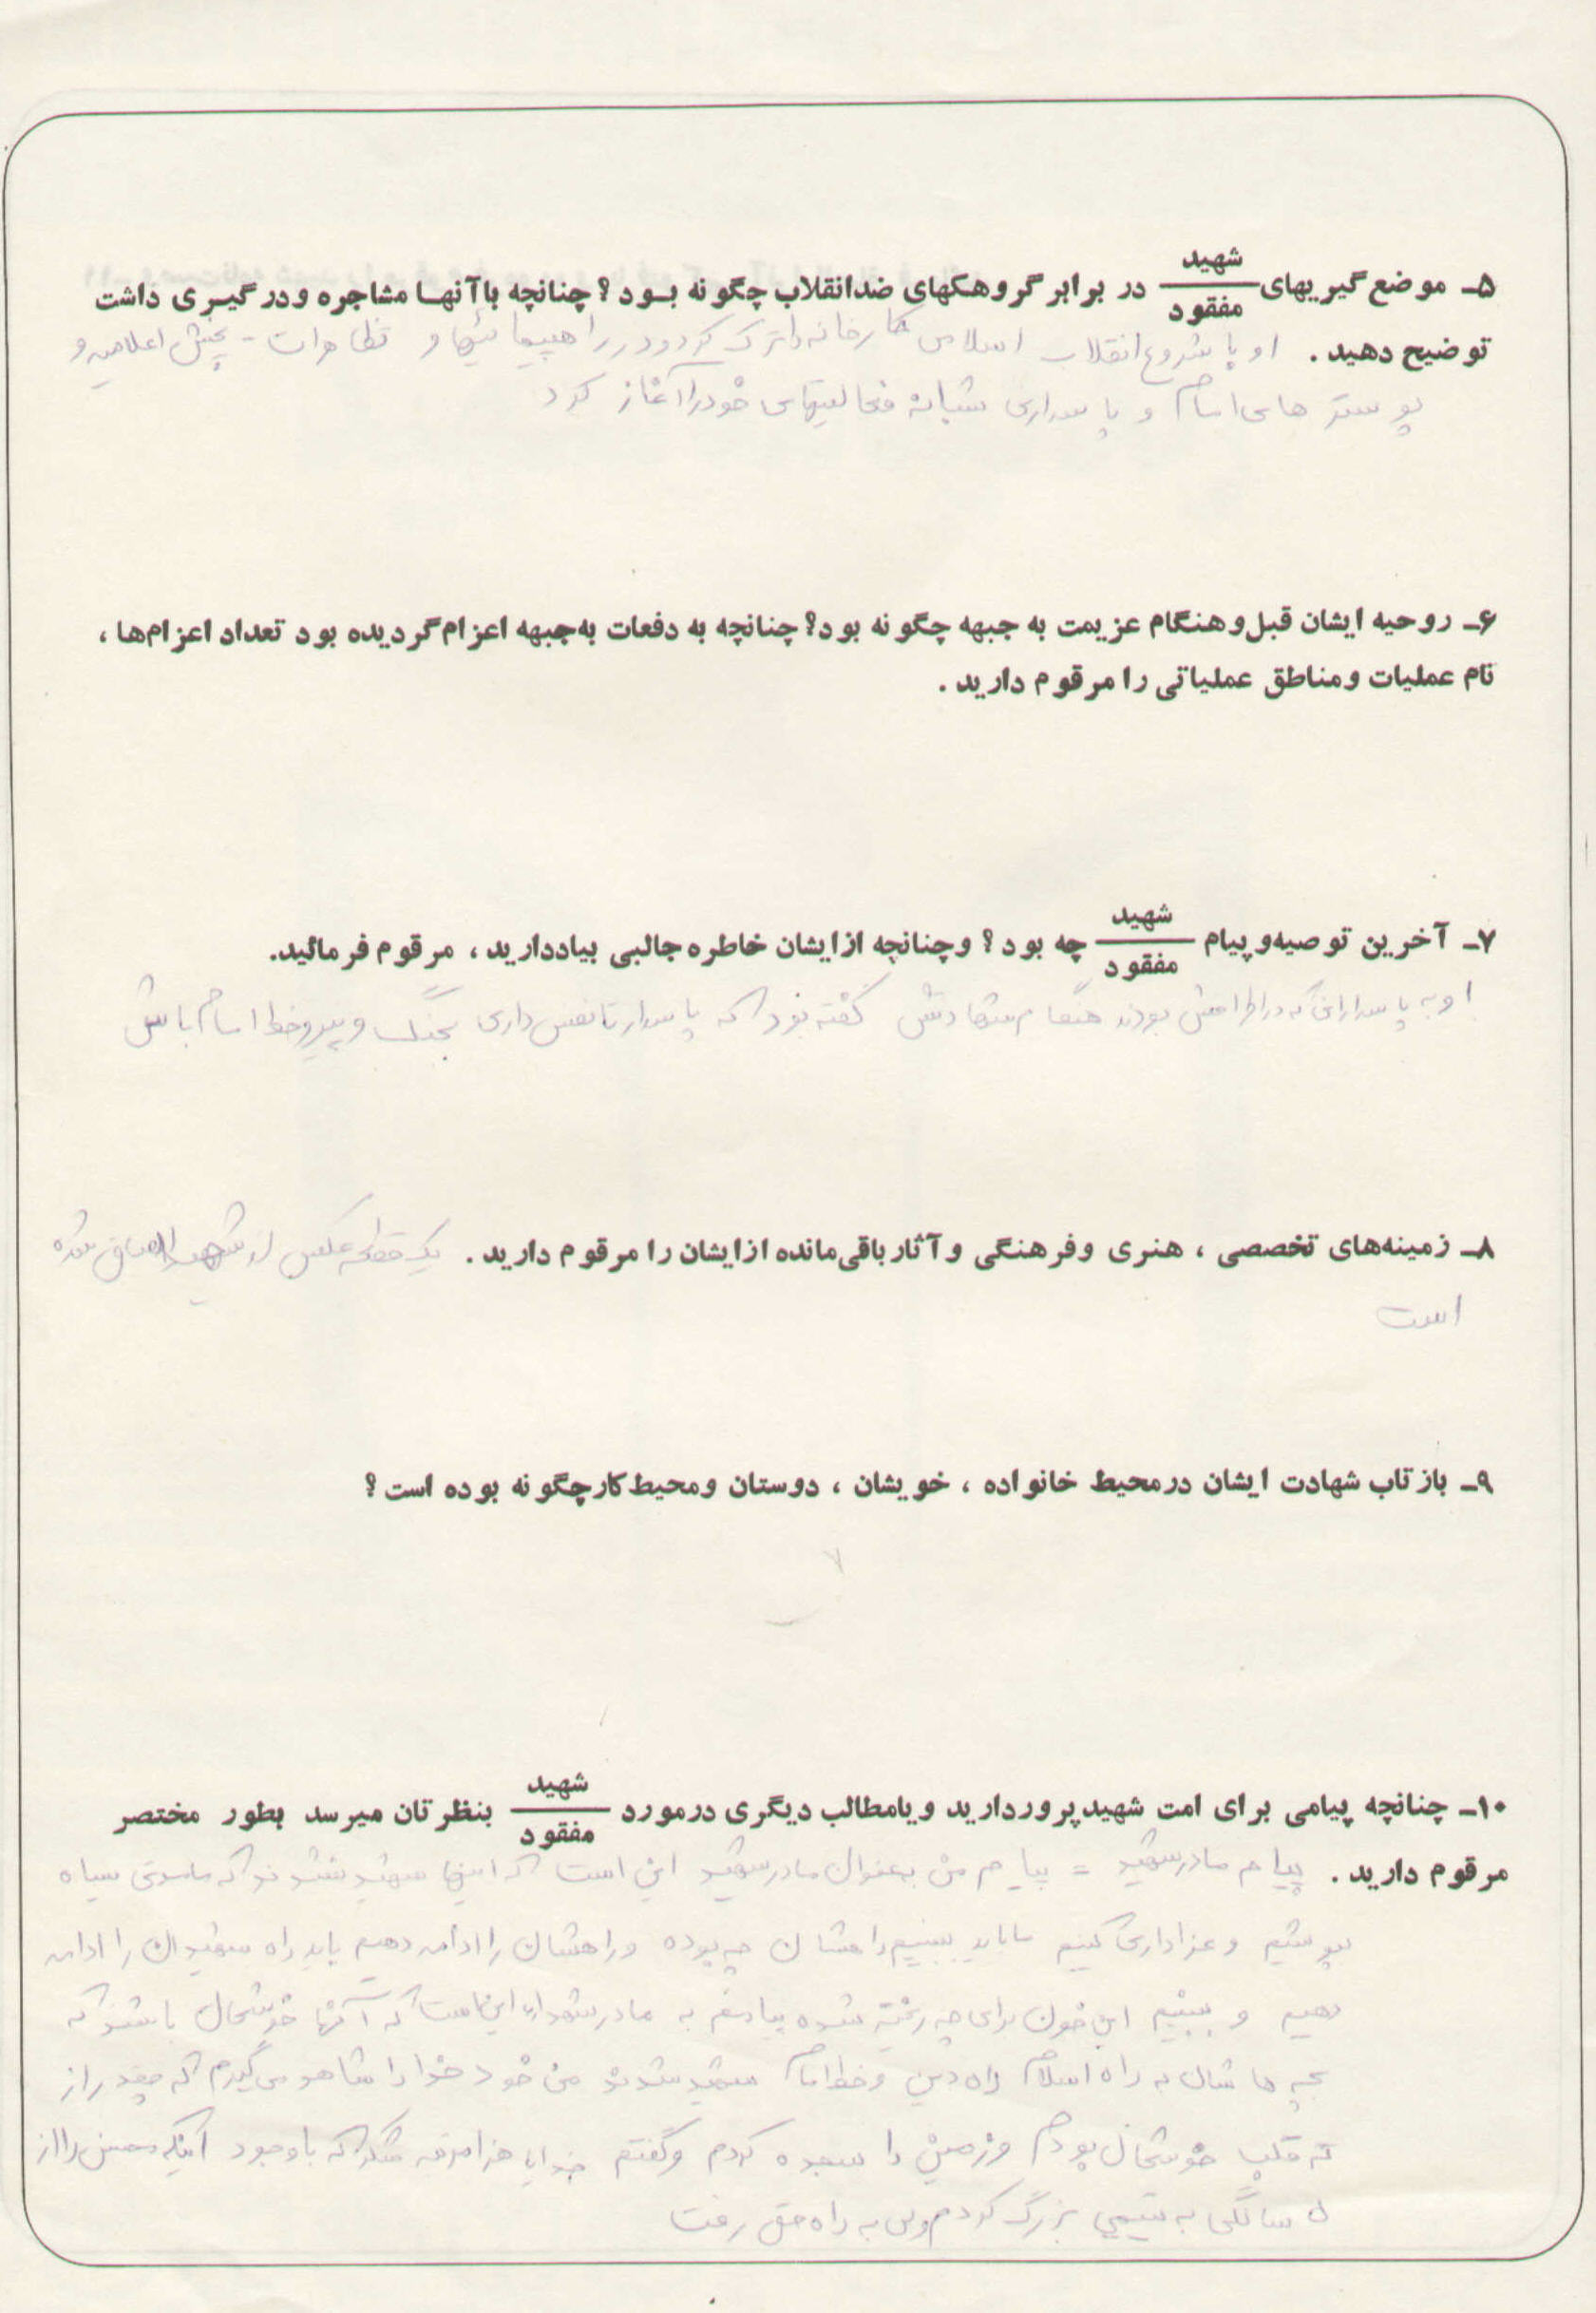 ۵ـ موضع گیریهای شهید/مفقود در برابر گروهکهای ضدانقلاب چگونه بـود؟ چنانچه باآنهـا مشاجره ودرگیـری داشت
توضیح دهید. او با شروع انقلاب اسلامی کارخانه را ترک کرد و در راهپیمائیها و تظاهرات - پخش اعلامیه و
پوسترهای امام و پاسداری شبانه فعالیتهای خود را آغاز کرد
۶ـ روحیه ایشان قبل وهنگام عزیمت به جبهه چگونه بود؟ چنانچه به دفعات به‌جبهه اعزام گردیده بود تعداد اعزام‌ها،
نام عملیات ومناطق عملیاتی را مرقوم دارید.
۷ـ آخرین توصیه‌وپیام شهید/مفقود چه بود؟ وچنانچه ازایشان خاطره جالبی بیاددارید، مرقوم فرمائید.
او به پاسدارانی که در اطرافش بودند هنگام شهادتش گفته بود که پاسدار تا نفس داری بجنگ و پیرو خط امام باش
۸ـ زمینه‌های تخصصی، هنری وفرهنگی وآثارباقی‌مانده ازایشان را مرقوم دارید. یک قطعه عکس از شهید الصاق شده
است
۹ـ بازتاب شهادت ایشان درمحیط خانواده، خویشان، دوستان ومحیط کارچگونه بوده است؟
۱۰ـ چنانچه پیامی برای امت شهیدپروردارید ویامطالب دیگری درمورد شهید/مفقود بنظرتان میرسد بطور مختصر
مرقوم دارید. پیام مادر شهید = پیام من بعنوان مادر شهید این است که اینها شهید نشدند که ما سیاه
بپوشیم و عزاداری کنیم ما باید ببینیم راهشان چه بوده و راهشان را ادامه دهیم باید راه شهیدان را ادامه
دهیم و ببینیم این خون برای چه ریخته شده پیامم به مادر شهدا این است که آنها خوشحال باشند که
بچه هاشان به راه اسلام راه دین و خط امام شهید شدند من خود خدا را شاهد می گیرم که چقدر از
ته قلب خوشحال بودم و زمین را سجده کردم و گفتم خدایا هزار مرتبه شکر که با وجود اینکه را از
سالگی به یتیمی بزرگ کردم ولی به راه حق رفت